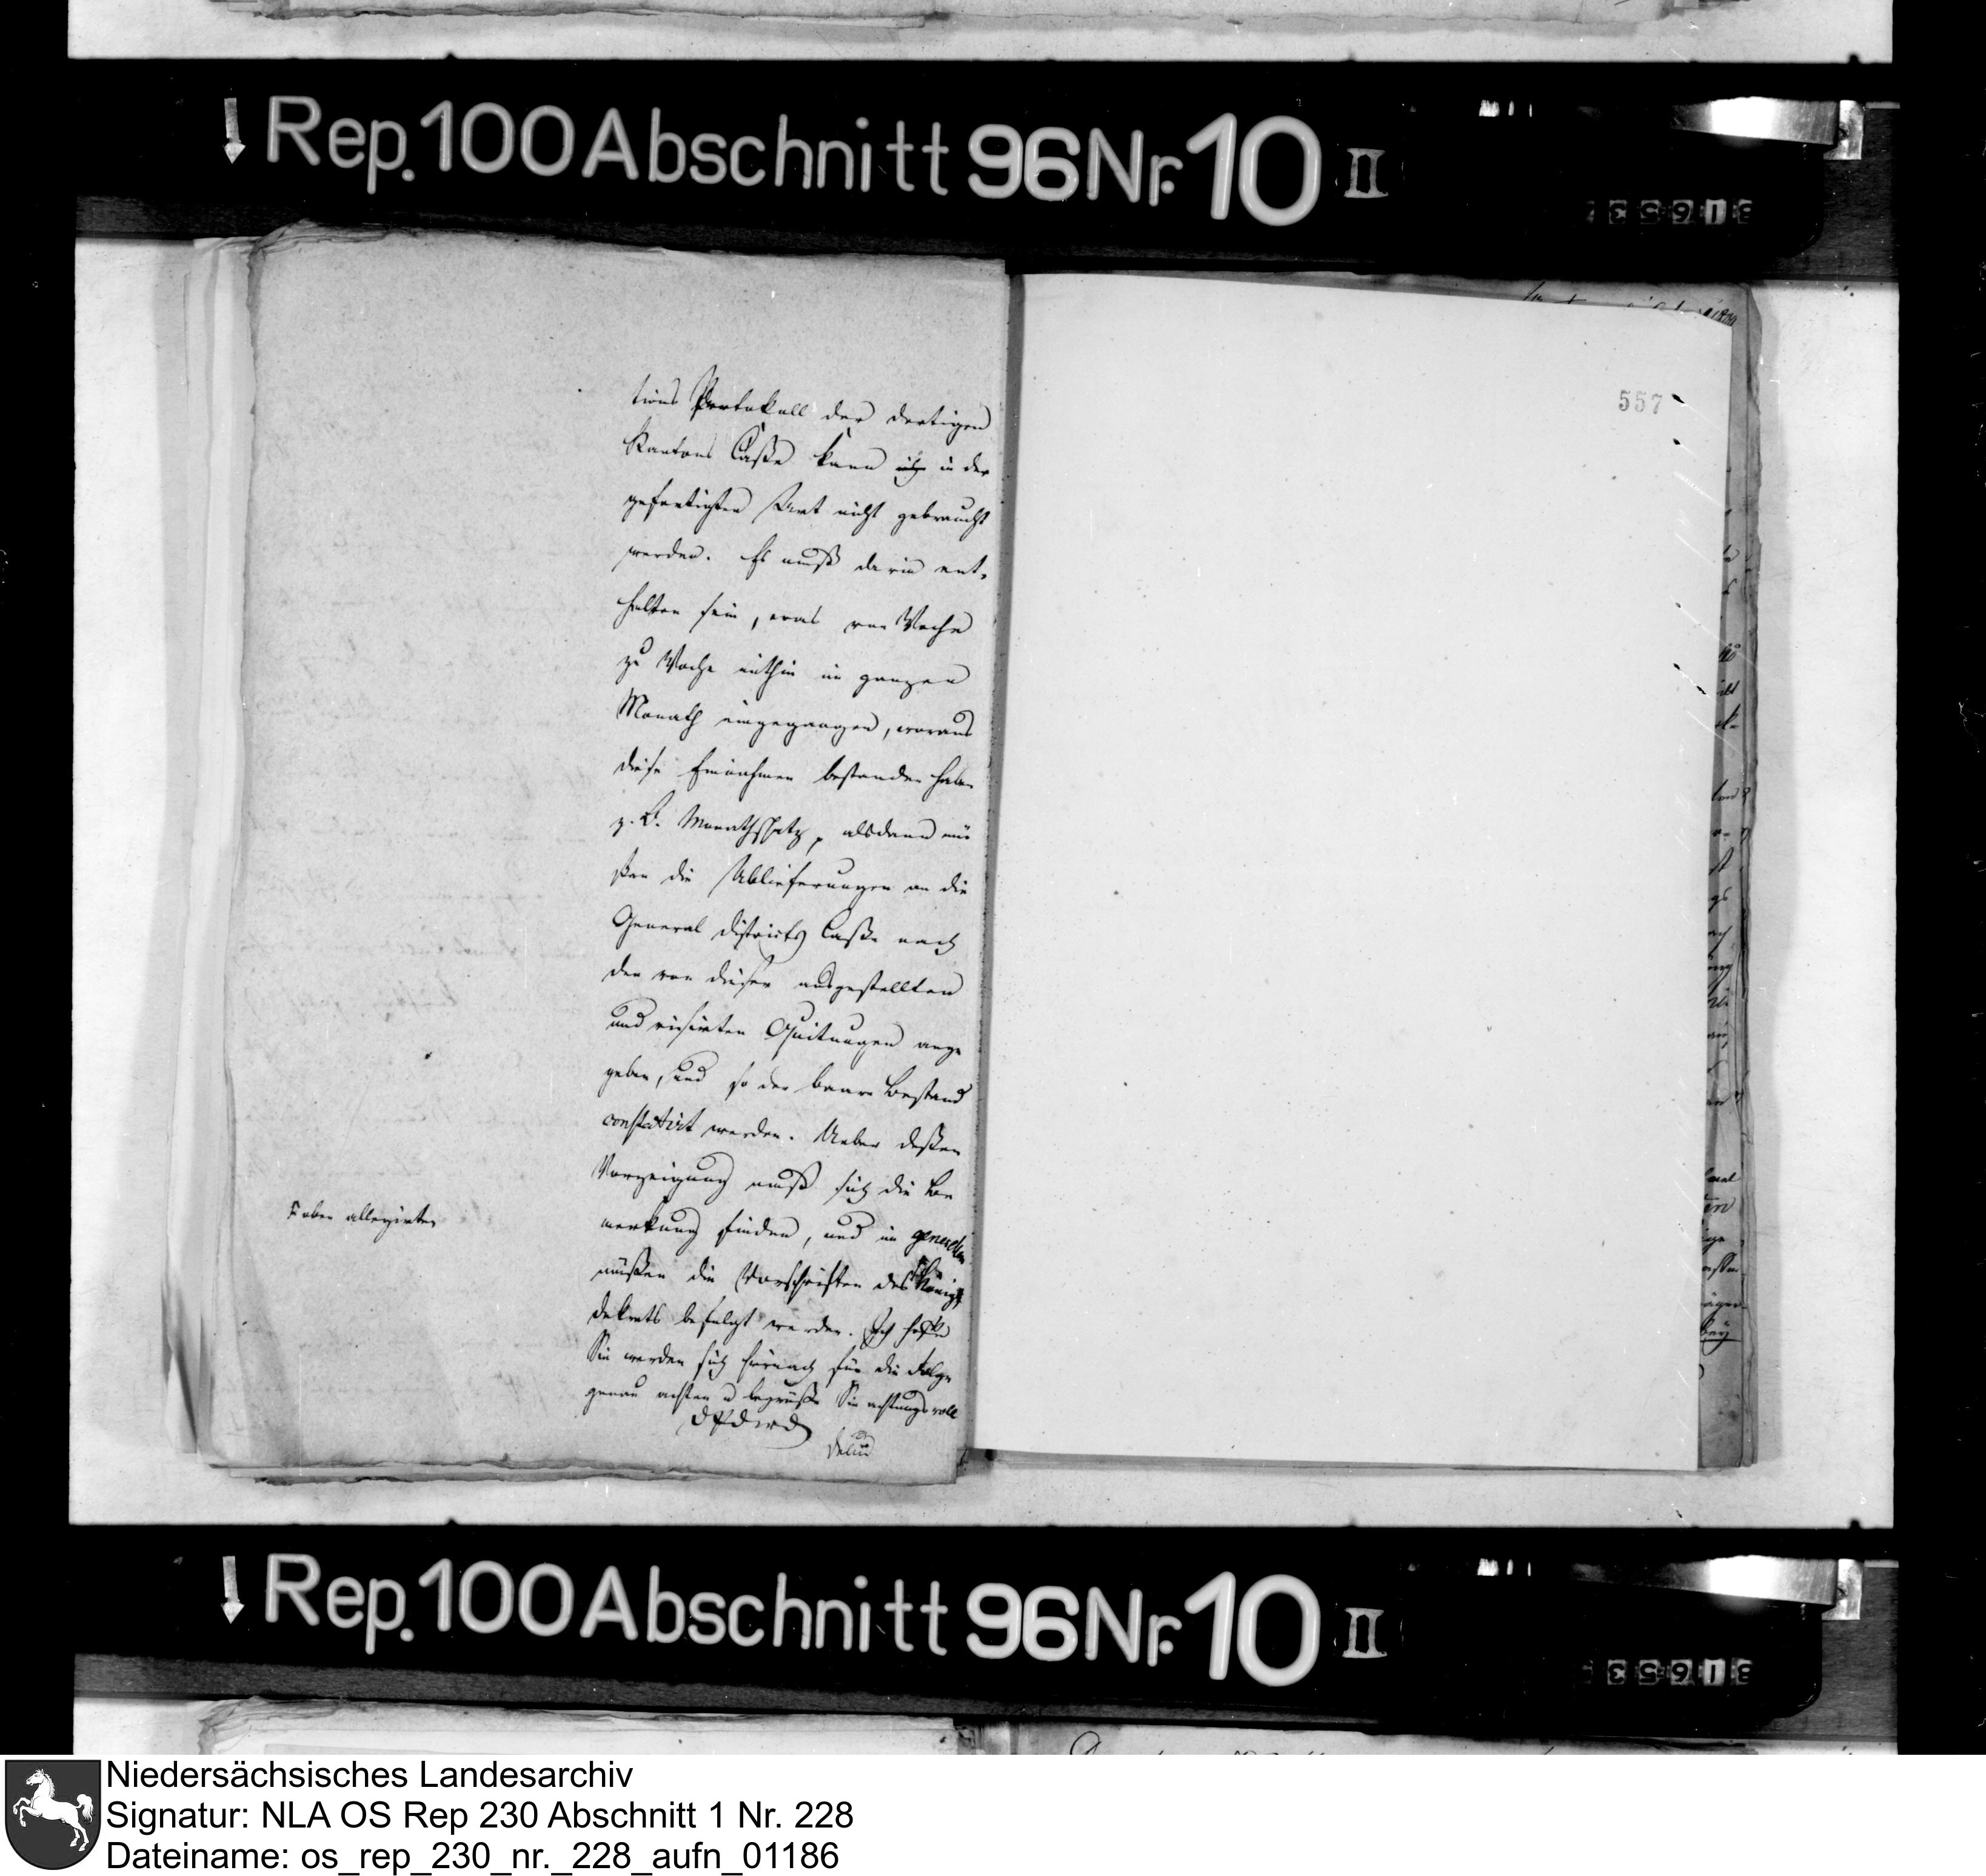 Rep. 100 Abschnitt 96 Nr. 10 II
tions Protokoll der dortigen
Kantons Caße kann in der
gefertigten Art nicht gebraucht
werden. Es muß darin ent-
halten sein, was von Woche
zu Woche mithin im ganzen
Monath eingegangen, woraus
diese Einnahmen bestanden haben
z. B. alsdann mü
ßen die Ablieferungen an die
General Districts Caße nach
den von dieser ausgestellten
und visirten Quitungen ange
geben, und so der baare Bestand
constatirt werden. Ueber deßen
Vorzeigung muß sich die Be
merkung finden, und im
müßen die Vorschriften des Königl
Dekrets befolgt werden. Ich hoffe
Sie werden sich hiernach für die Folge
genau achten u begrüße Sie achtungsvoll
oben allegirten
557
Rep. 100 Abschnitt 96 Nr. 10 II
Niedersächsisches Landesarchiv
Signatur: NLA OS Rep 230 Abschnitt 1 Nr. 228
Dateiname: os_rep_230_nr._228_aufn_01186